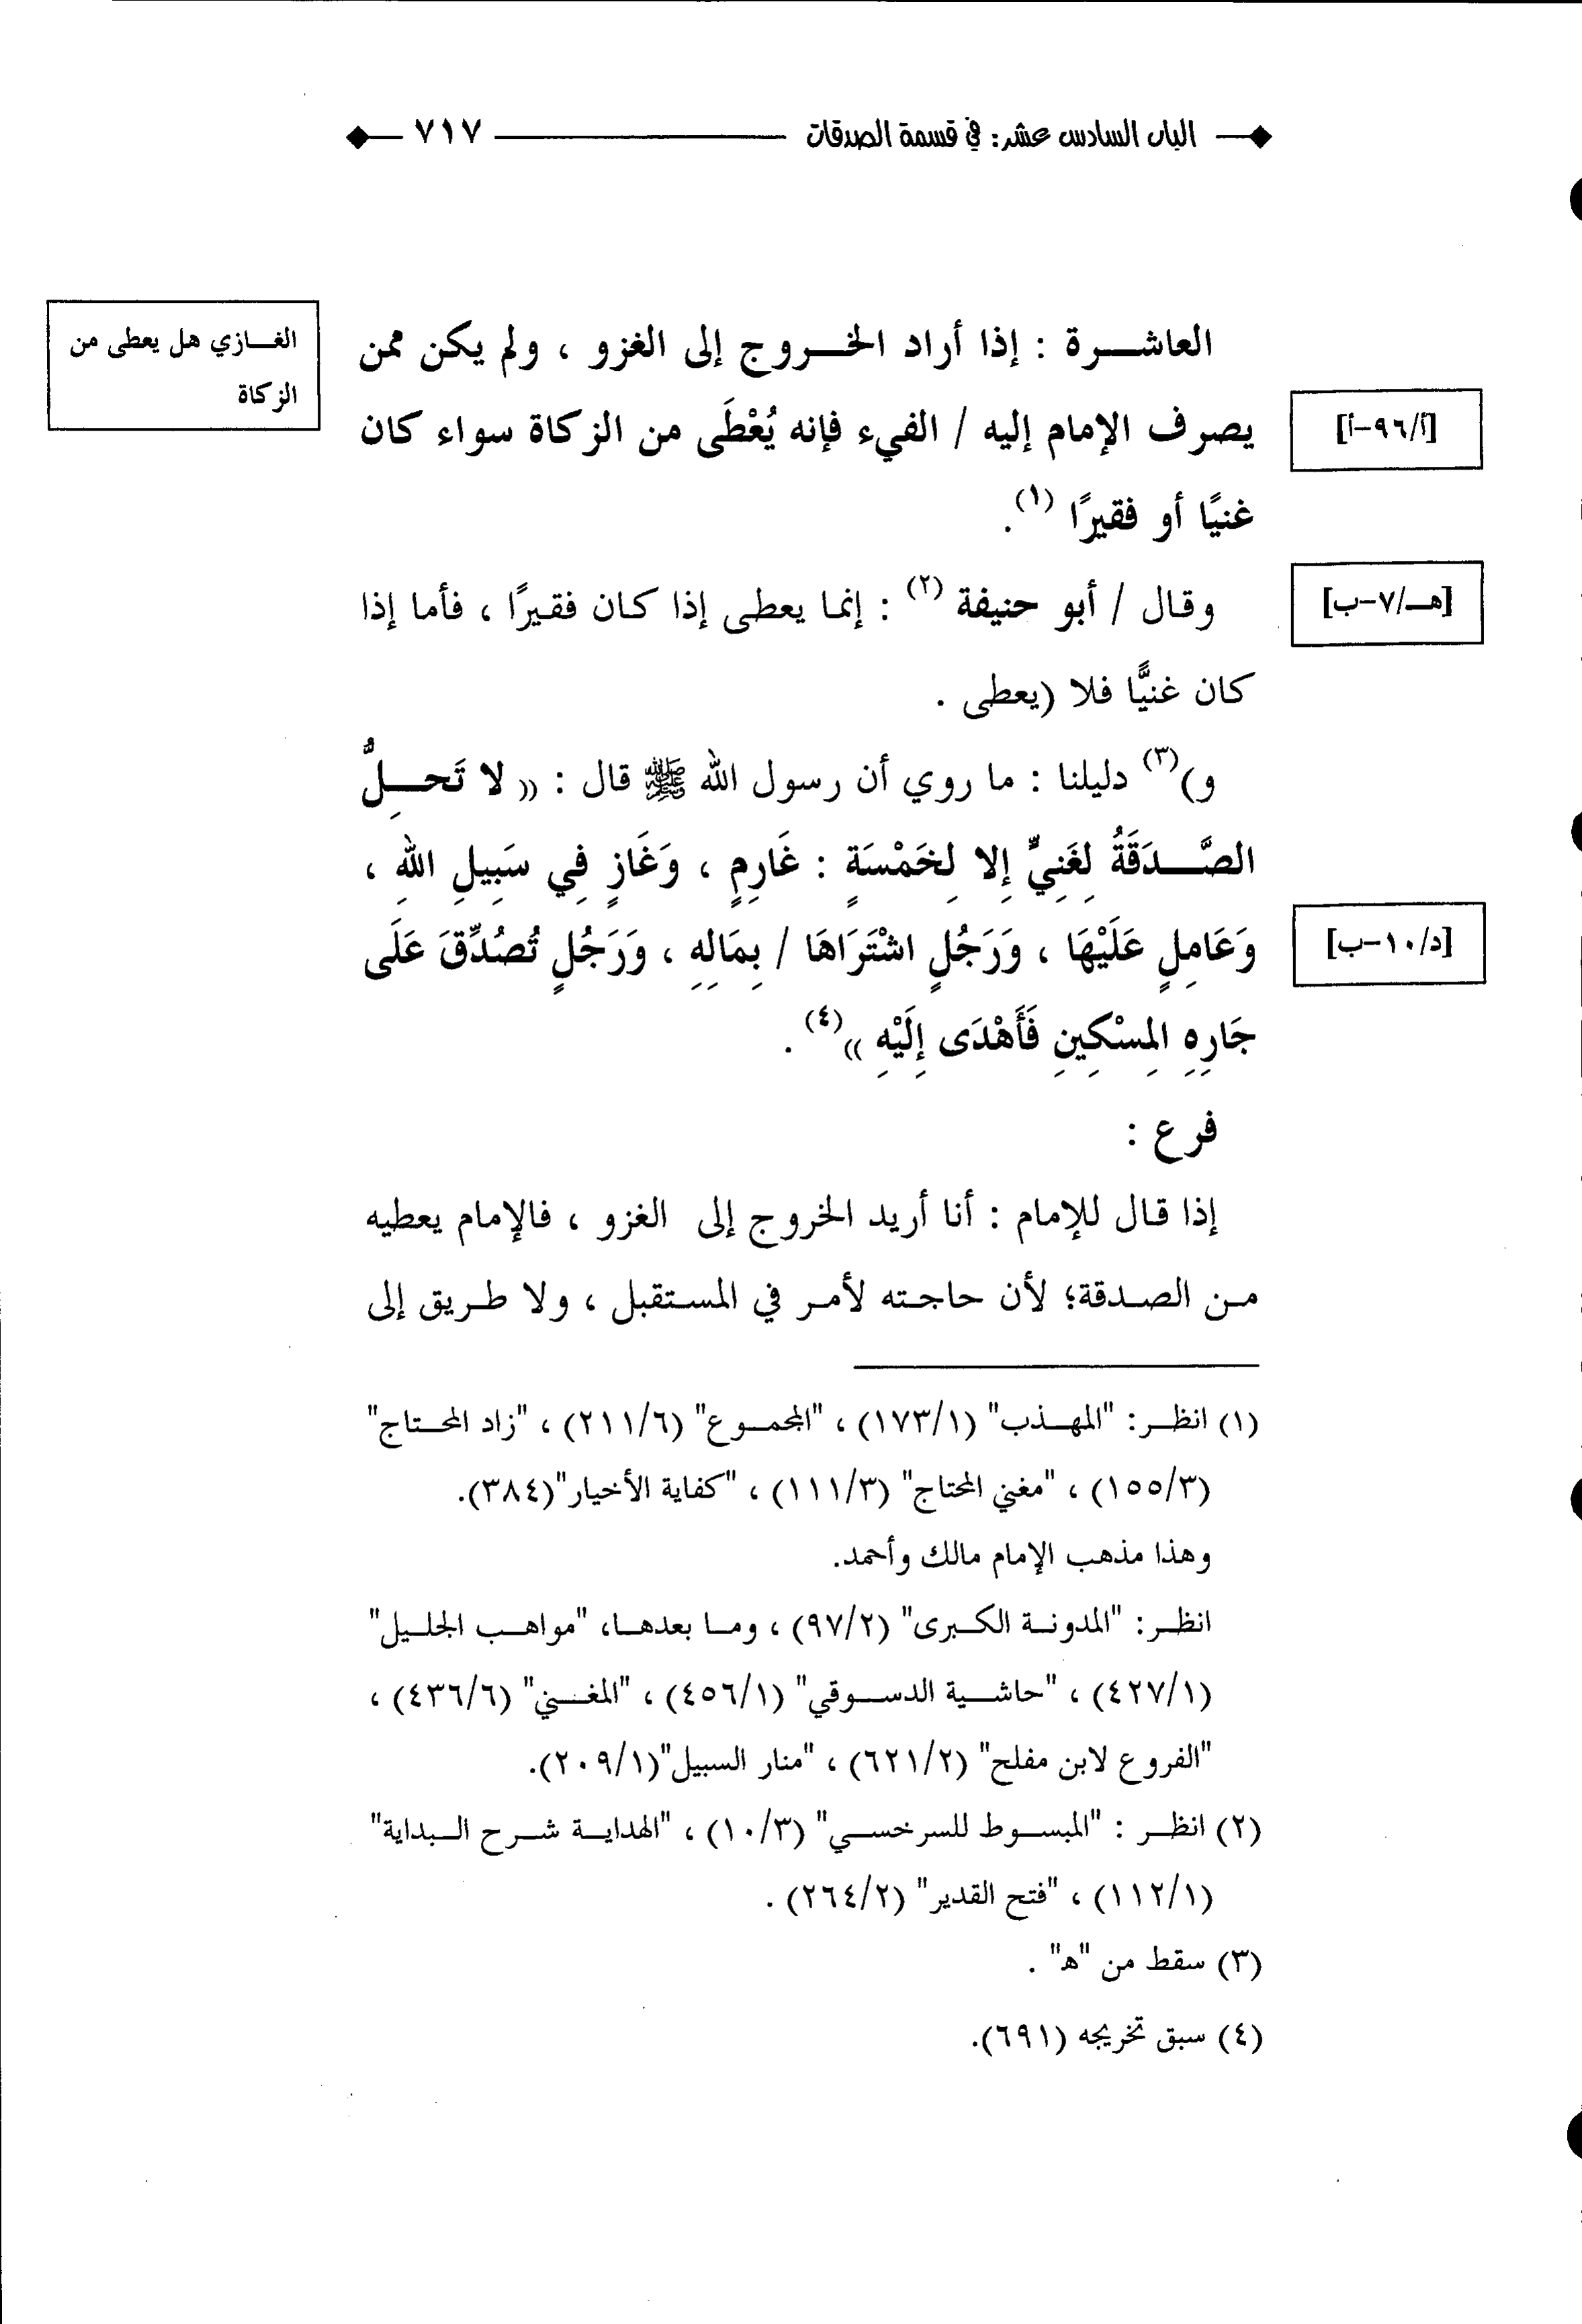 الباب السادس عشر: في قسمة الصدقات ٧١٧
الغازي هل يعطى من
الزكاة
العاشرة : إذا أراد الخروج إلى الغزو ، ولم يكن ممن
[أ/٩٦-أ]
يصرف الإمام إليه / الفيء فإنه يُعْطَى من الزكاة سواء كان
غنيًا أو فقيرًا (١).
[هـ/٧-ب]
وقال / أبو حنيفة (٢) : إنما يعطى إذا كان فقيرًا ، فأما إذا
كان غنيًّا فلا (يعطى .
و)(٣) دليلنا : ما روي أن رسول الله ﷺ قال : « لا تَحِلُّ
الصَّدَقَةُ لِغَنِيٍّ إِلا لِخَمْسَةٍ : غَارِمٍ ، وَغَازٍ فِي سَبِيلِ اللهِ ،
[د/١٠-ب]
وَعَامِلٍ عَلَيْهَا ، وَرَجُلٍ اشْتَرَاهَا / بِمَالِهِ ، وَرَجُلٍ تُصُدِّقَ عَلَى
جَارِهِ المِسْكِينِ فَأَهْدَى إِلَيْهِ »(٤) .
فرع :
إذا قال للإمام : أنا أريد الخروج إلى الغزو ، فالإمام يعطيه
من الصدقة؛ لأن حاجته لأمر في المستقبل ، ولا طريق إلى
(١) انظر: "المهذب" (١٧٣/١) ، "المجموع" (٢١١/٦) ، "زاد المحتاج"
(١٥٥/٣) ، "مغني المحتاج" (١١١/٣) ، "كفاية الأخيار"(٣٨٤).
وهذا مذهب الإمام مالك وأحمد.
انظر: "المدونة الكبرى" (٩٧/٢) ، وما بعدها، "مواهب الجليل"
(٤٢٧/١) ، "حاشية الدسوقي" (٤٥٦/١) ، "المغني" (٤٣٦/٦) ،
"الفروع لابن مفلح" (٦٢١/٢) ، "منار السبيل"(٢٠٩/١).
(٢) انظر : "المبسوط للسرخسي" (١٠/٣) ، "الهداية شرح البداية"
(١١٢/١) ، "فتح القدير" (٢٦٤/٢) .
(٣) سقط من "ه" .
(٤) سبق تخريجه (٦٩١).